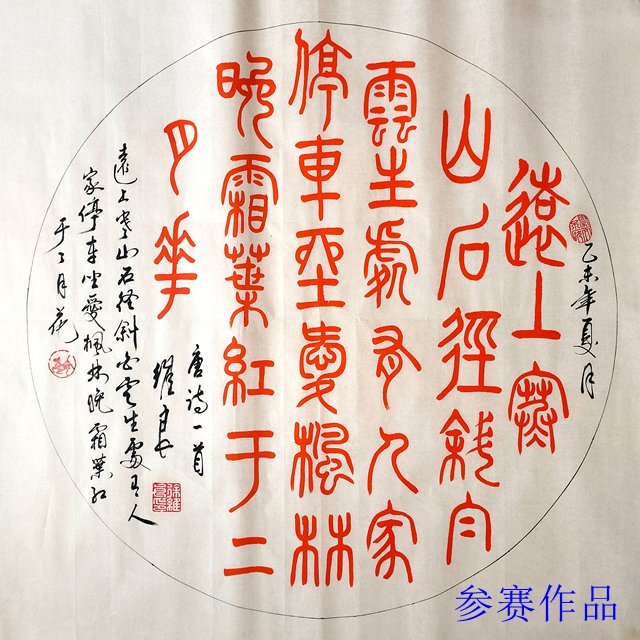 乙未年夏月
遠上寒
山石徑斜白
雲生處有人家
停車坐愛楓林
晚霜葉紅于二
月華
唐詩一首
維良
遠上寒山石徑斜白雲生處有人
家停車坐愛楓林晚霜葉紅
于二月花
参赛作品